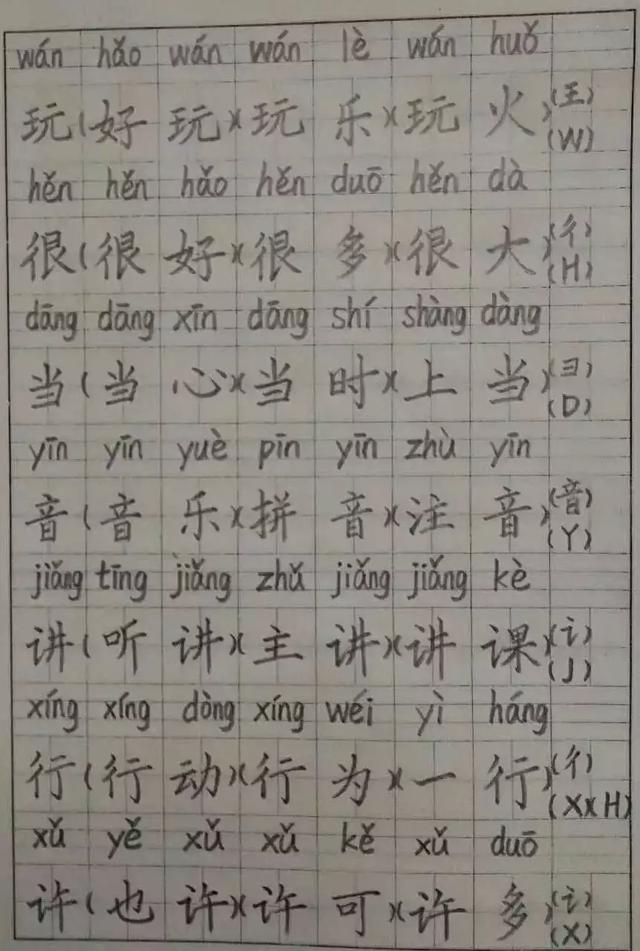 wán hǎo wán wán lè wán huǒ
玩(好玩)(玩乐)(玩火)(王)(W)
hěn hěn hǎo hěn duō hěn dà
很(很好)(很多)(很大)(彳)(H)
dāng dāng xīn dāng shí shàng dàng
当(当心)(当时)(上当)(彐)(D)
yīn yīn yuè pīn yīn zhù yīn
音(音乐)(拼音)(注音)(音)(Y)
jiǎng tīng jiǎng zhǔ jiǎng jiǎng kè
讲(听讲)(主讲)(讲课)(讠)(J)
xíng xíng dòng xíng wéi yì háng
行(行动)(行为)(一行)(彳)(X)(H)
xǔ yě xǔ xǔ kě xǔ duō
许(也许)(许可)(许多)(讠)(X)